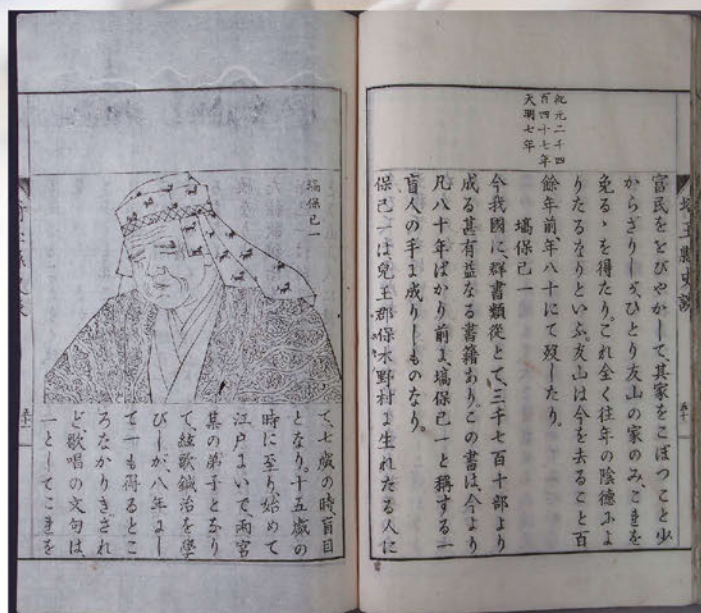 紀元二千四
百四十七年
天明七年
富民ををびやかして、其家をこぼつこと少
からざりしが、ひとり友山の家のみ、これを
免るゝを得たり。これ全く往年の陰德によ
りたるなりといふ。友山は今を去ること百
餘年前、年八十にて歿したり。
塙保己一
今我國に、群書類從とて、三千七百十部より
成る甚有益なる書籍あり。この書は、今より
凡八十年ばかり前ま、塙保己一と稱する一
盲人の手ま成りしものなり。
保己一は兒玉郡保木野村ま生れたる人に
埼玉縣史談
五十
塙保己一
て、七歳の時、盲目
となり。十五歳の
時に至り、始めて
江戸まいで、雨宮
某の弟子となり
て、絃歌鍼治を學
びしが、八年まし
て一も得るとこ
ろなかりき。され
ど、歌唱の文句は、
一としてこれを